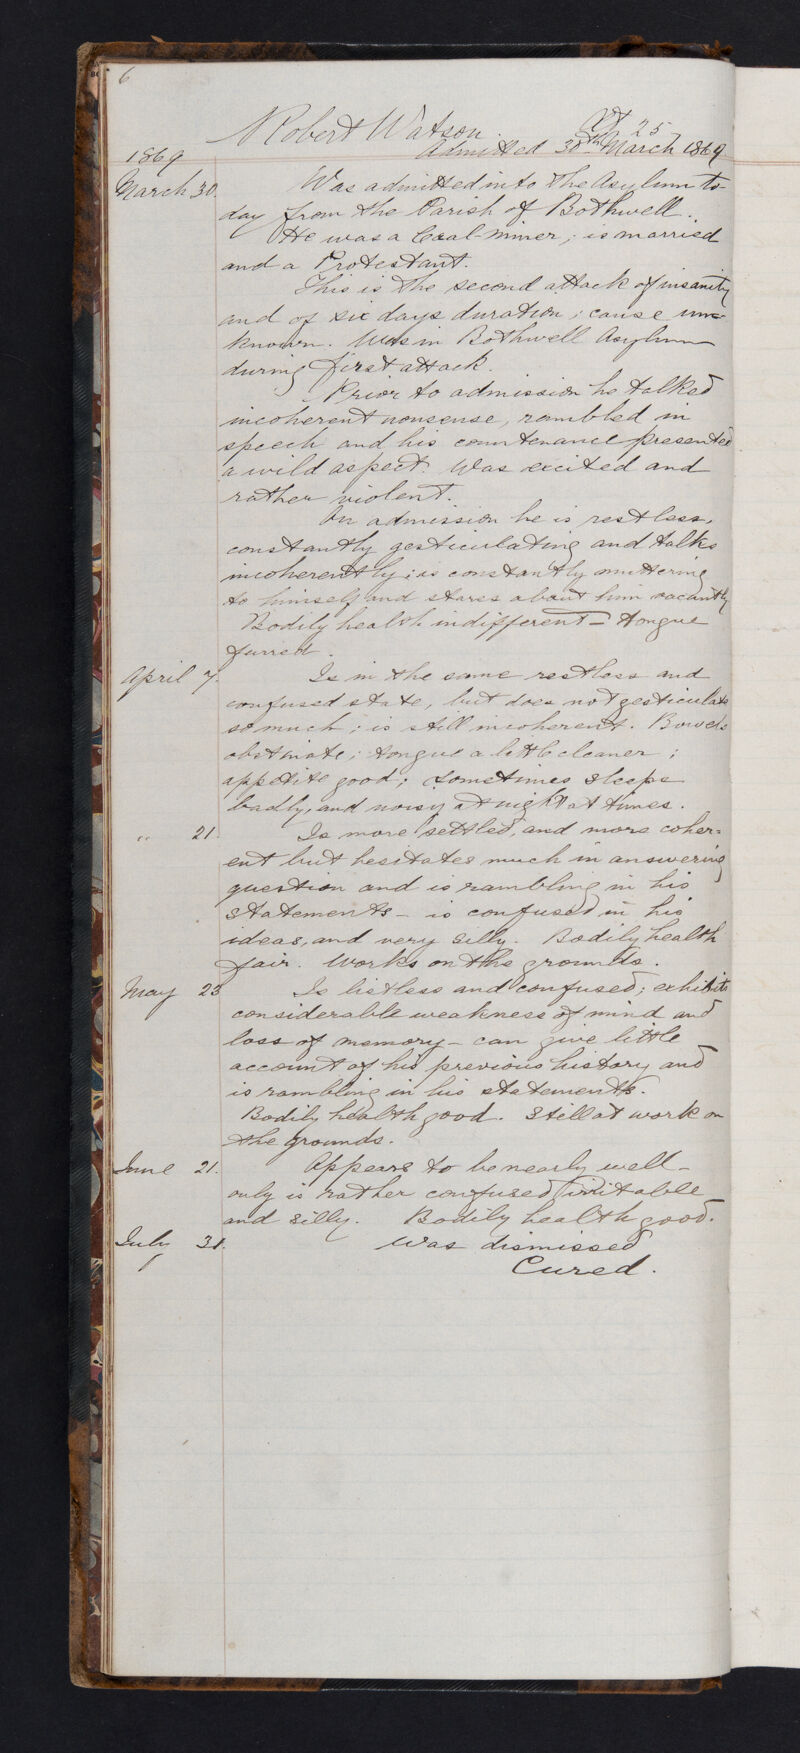 6
Robert Watson. Æt 25
1869 Admitted 30th March 1869
March 30. Was admitted into the Asylum to-
day from the Parish of Bothwell.
He was a Coal-miner; is married
and a Protestant.
This is the second attack of insanity
and of six days duration; cause un-
known. Was in Bothwell Asylum
during first attack.
Prior to admission he talked
incoherent nonsense, rambled in
speech and his countenance presented
a wild aspect. Was excited and
rather violent.
On admission he is restless,
constantly gesticulating and talks
incoherently; is constantly muttering
to himself and stares about him vacantly
Bodily health indifferent – tongue
furred.
April 7. Is in the same restless and
confused state, but does not gesticulate
so much; is still incoherent. Bowels
obstinate; tongue a little cleaner;
appetite good; sometimes sleeps
badly, and noisy at night at times.
" 21. Is more settled, and more coher=
ent but hesitates much in answering
question and is rambling in his
statements – is confused in his
ideas, and very silly. Bodily health
fair. Works on the grounds.
May 23 Is listless and confused; exhibits
considerable weakness of mind and
loss of memory – can give little
account of his previous history and
is rambling in his statements.
Bodily health good. Still at work on
the grounds.
June 21. Appears to be nearly well –
only is rather confused irritable
and silly. Bodily health good.
July 31. Was dismissed
Cured.